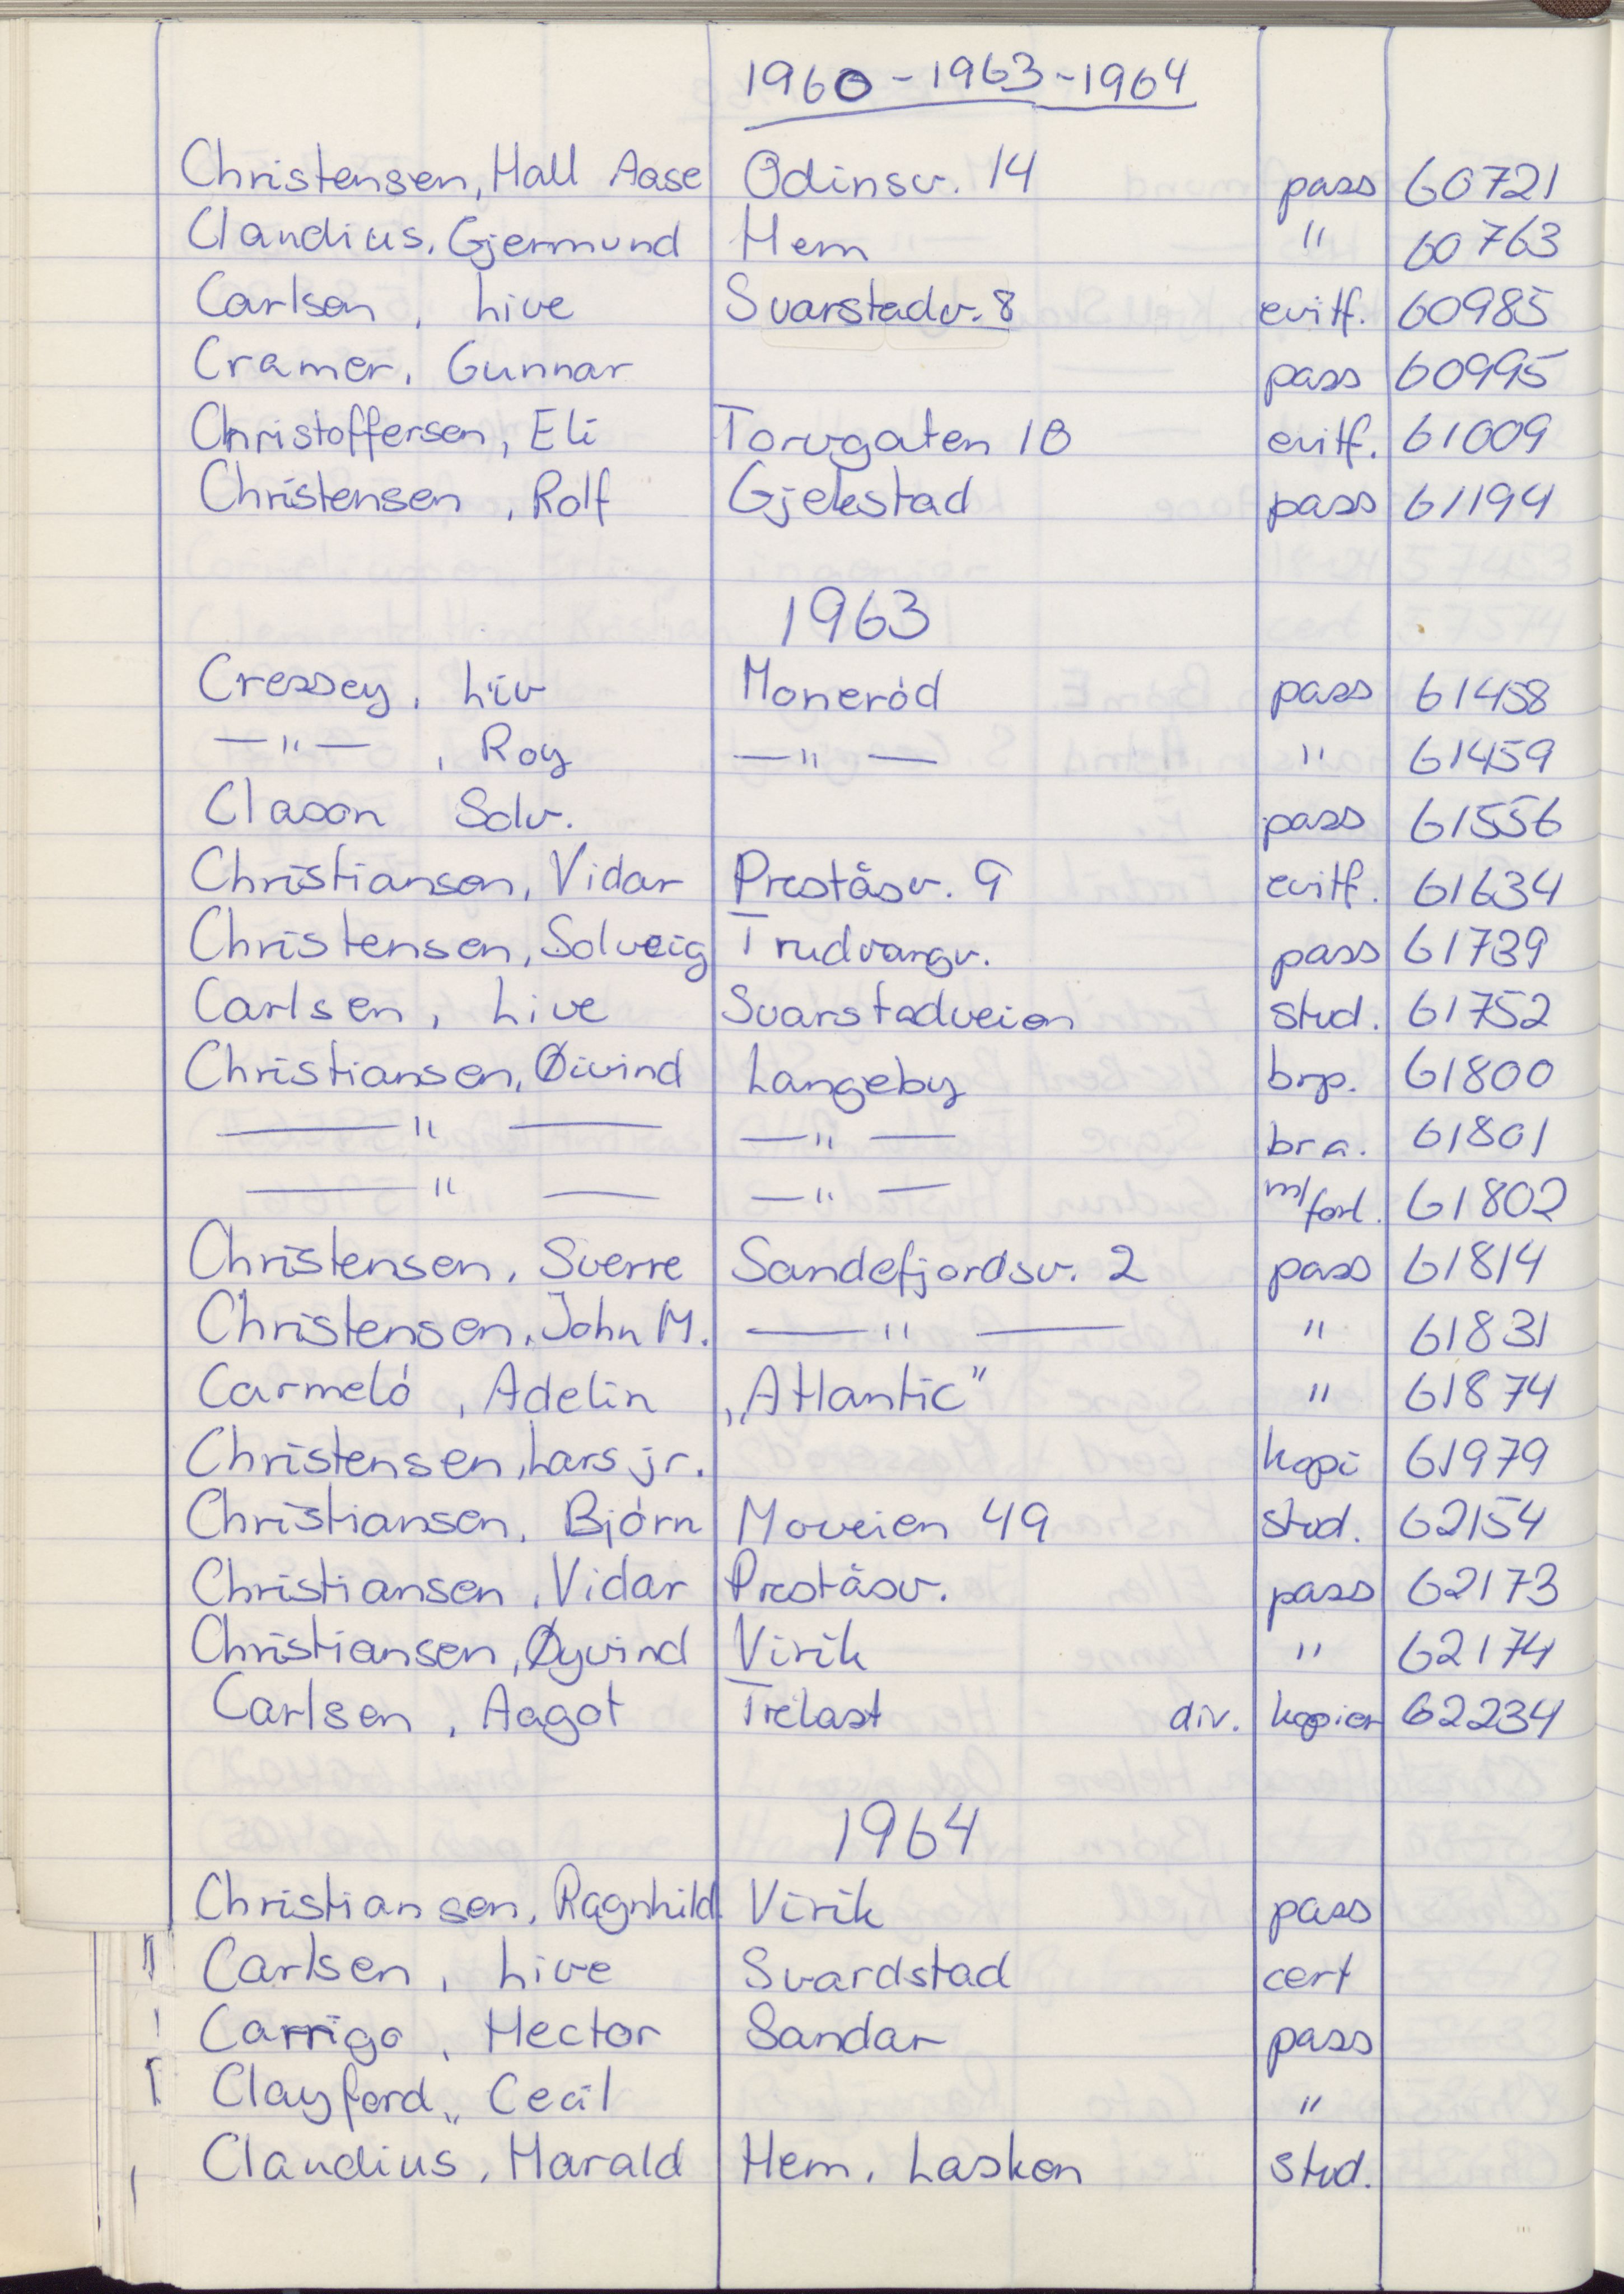 1960 - 1963 - 1964
Christensen, Hall Aase Odinsv. 14 pass 60721
Claudius, Gjermund Hem " 60763
Carlsen, Live Svarstadv. 8 evitf. 60985
Cramer, Gunnar pass 60995
Christoffersen, Eli Torvgaten 10 evitf. 61009
Christensen, Rolf Gjekstad pass 61194
1963
Cressey, Liv Moneród pass 61458
— " — , Roy — " — " 61459
Clason Solv. pass 61556
Christiansen, Vidar Preståsv. 9 evitf. 61634
Christensen, Solveig Trudvangv. pass 61739
Carlsen, Live Svarstadveien stud. 61752
Christiansen, Øivind Langeby brp. 61800
— " — — " — br a. 61801
— " — — " — m/forl. 61802
Christensen, Sverre Sandefjordsv. 2 pass 61814
Christensen, John M. — " — " 61831
Carmeló, Adelin „Atlantic" " 61874
Christensen, Lars jr. kopi 61979
Christiansen, Bjórn Moveien 49 stud. 62154
Christiansen, Vidar Preståsv. pass 62173
Christiansen, Øyvind Virik " 62174
Carlsen, Aagot Trelast div. kopier 62234
1964
Christiansen, Ragnhild Virik pass
Carlsen, Live Svardstad cert
Carrigo, Hector Sandar pass
Clayford, Cecil "
Claudius, Harald Hem, Lasken stud.